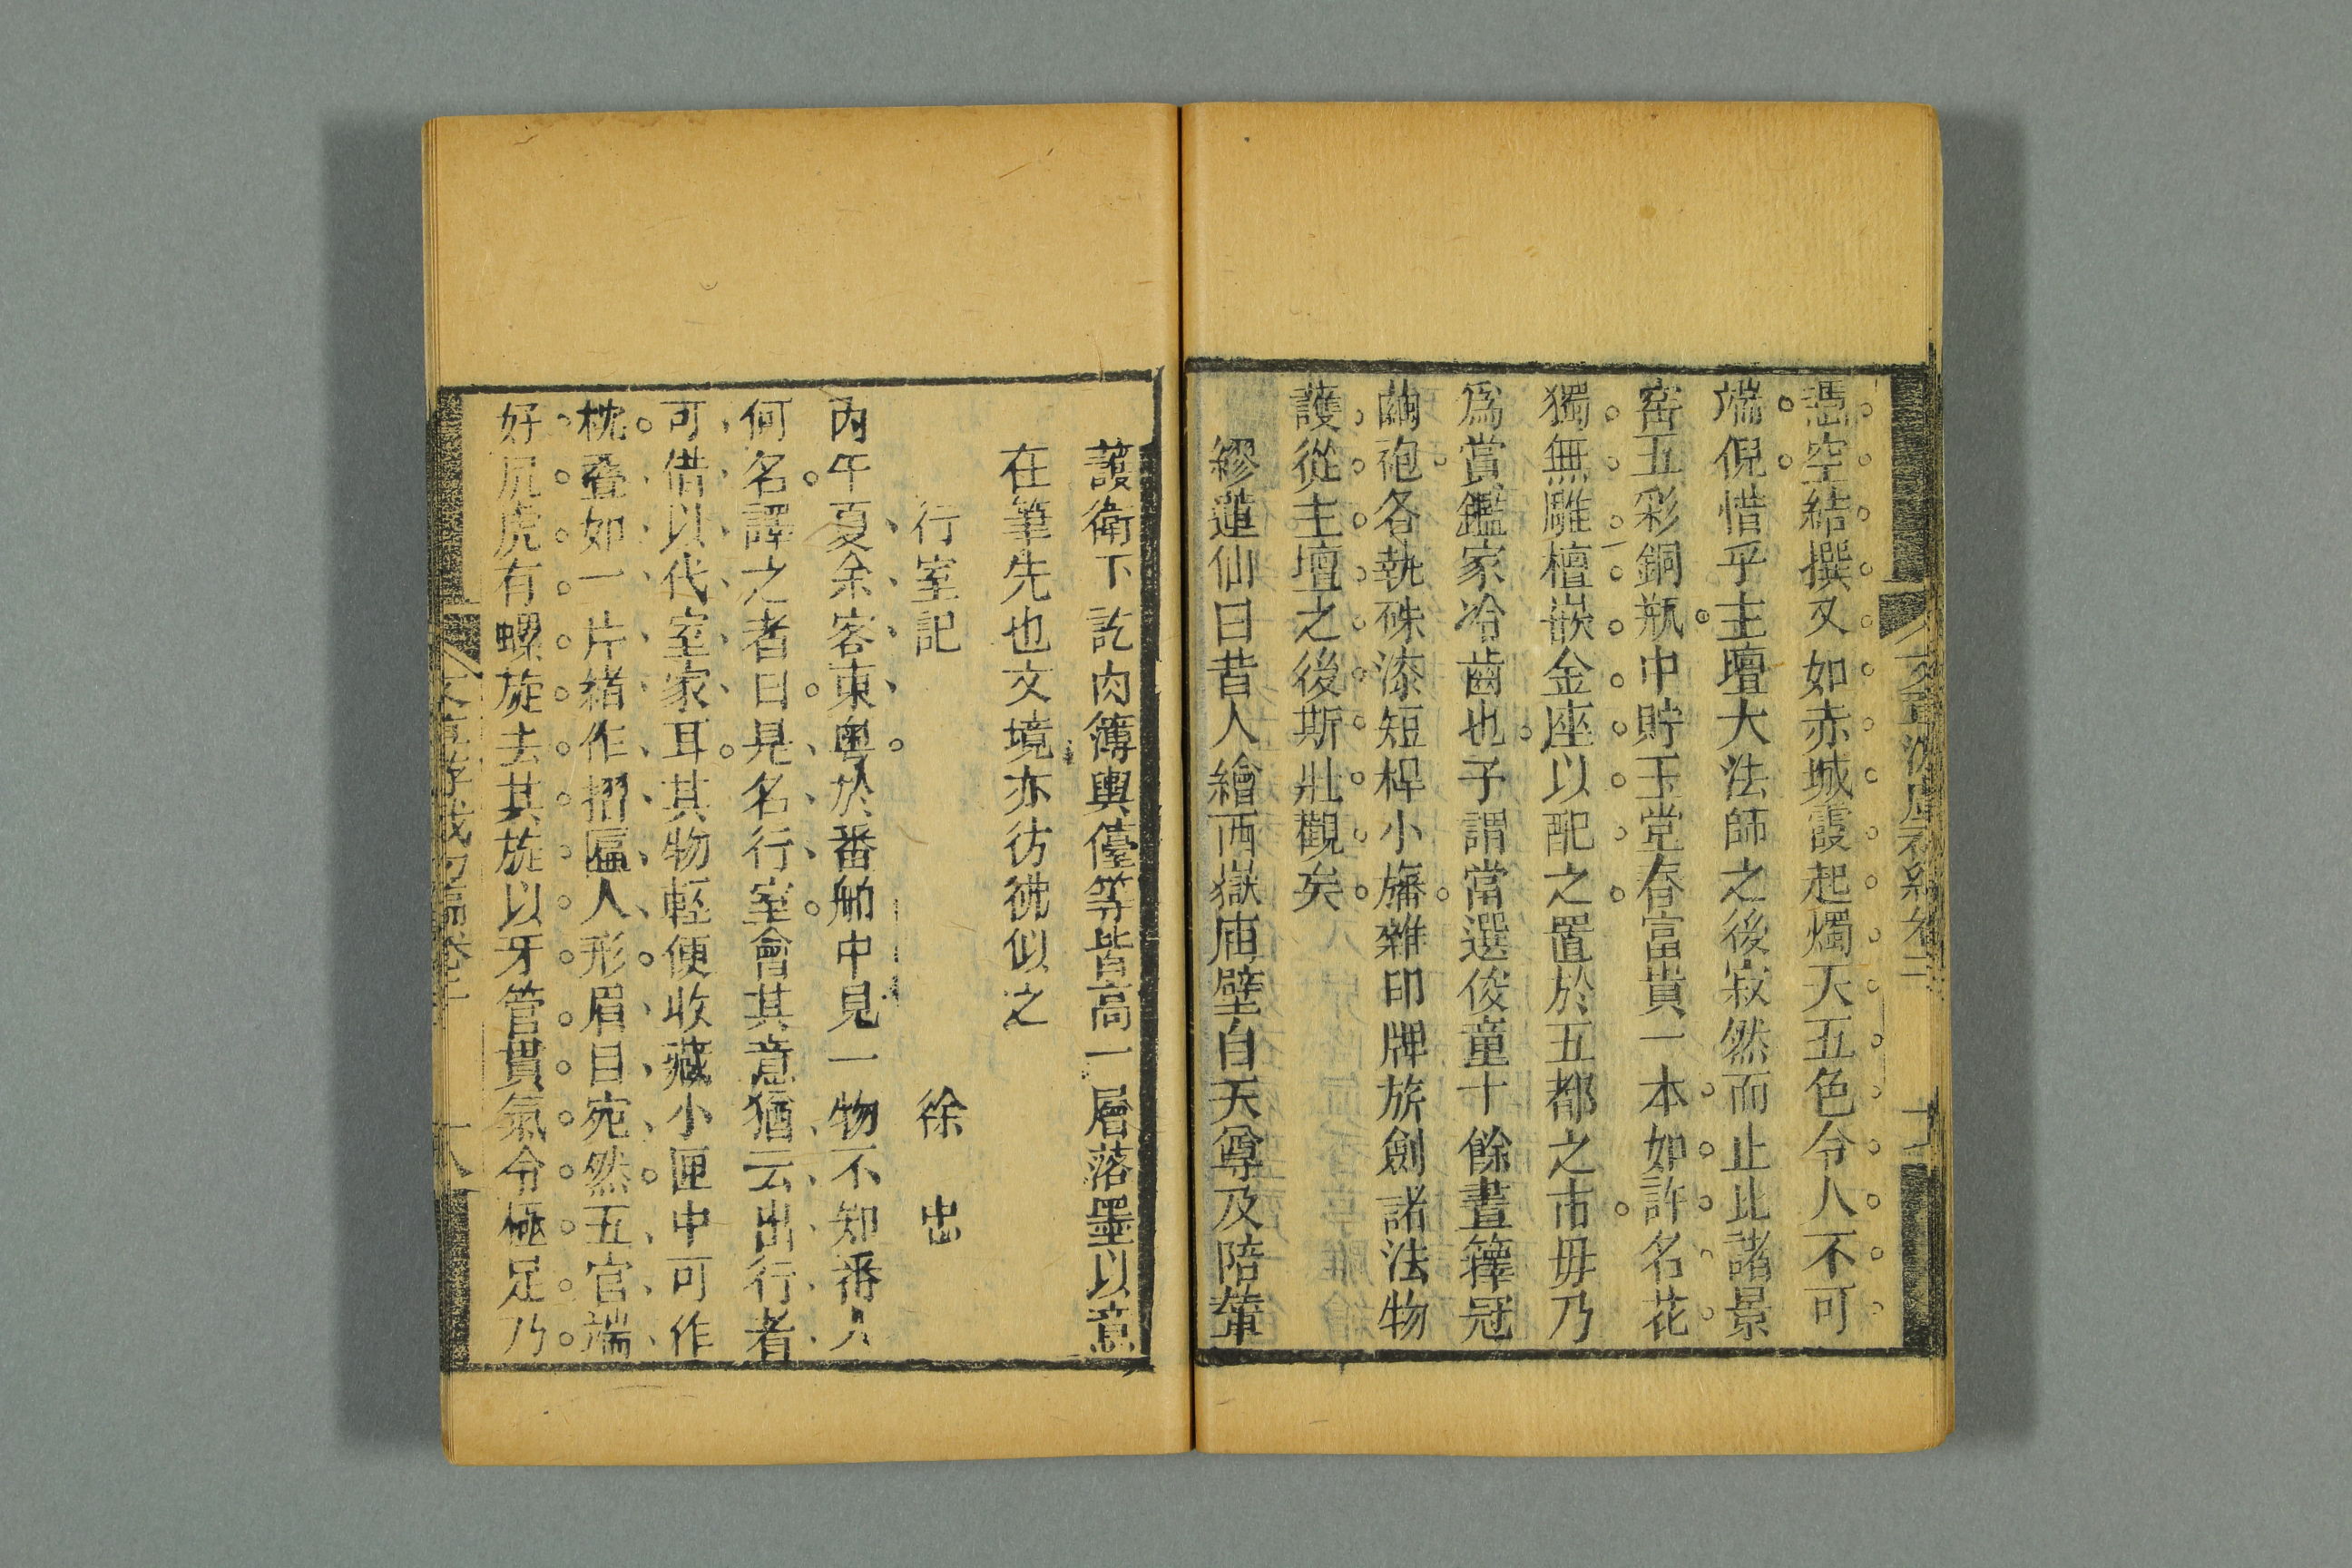 憑空結撰又如赤城霞起燭天五色令人不可
端倪惜乎主壇大法師之後寂然而止此諸景
窑五彩銅瓶中貯玉堂春富貴一本如許名花
獨無雕檀嵌金座以配之置於五都之市毋乃
爲賞鑑家冷齒也予謂當選俊童十餘晝籜冠
繭袍各執硃漆短桿小旛雜印牌旂劍諸法物
護從主壇之後斯壯觀矣
繆蓮仙曰昔人繪西嶽庙壁自天尊及陪輦
護衛下訖肉簿輿儓等皆高一層落墨以意
在筆先也文境亦彷彿似之
行室記 徐忠
丙午夏余客東粤於番舶中見一物不知番人
何名譯之者曰是名行室會其意猶云出行者
可借以代室家耳其物輕便收藏小匣中可作
枕叠如一片緒作摺匾人形眉目宛然五官端
好尻虎有螺旋去其旋以牙管貫氣令極足乃